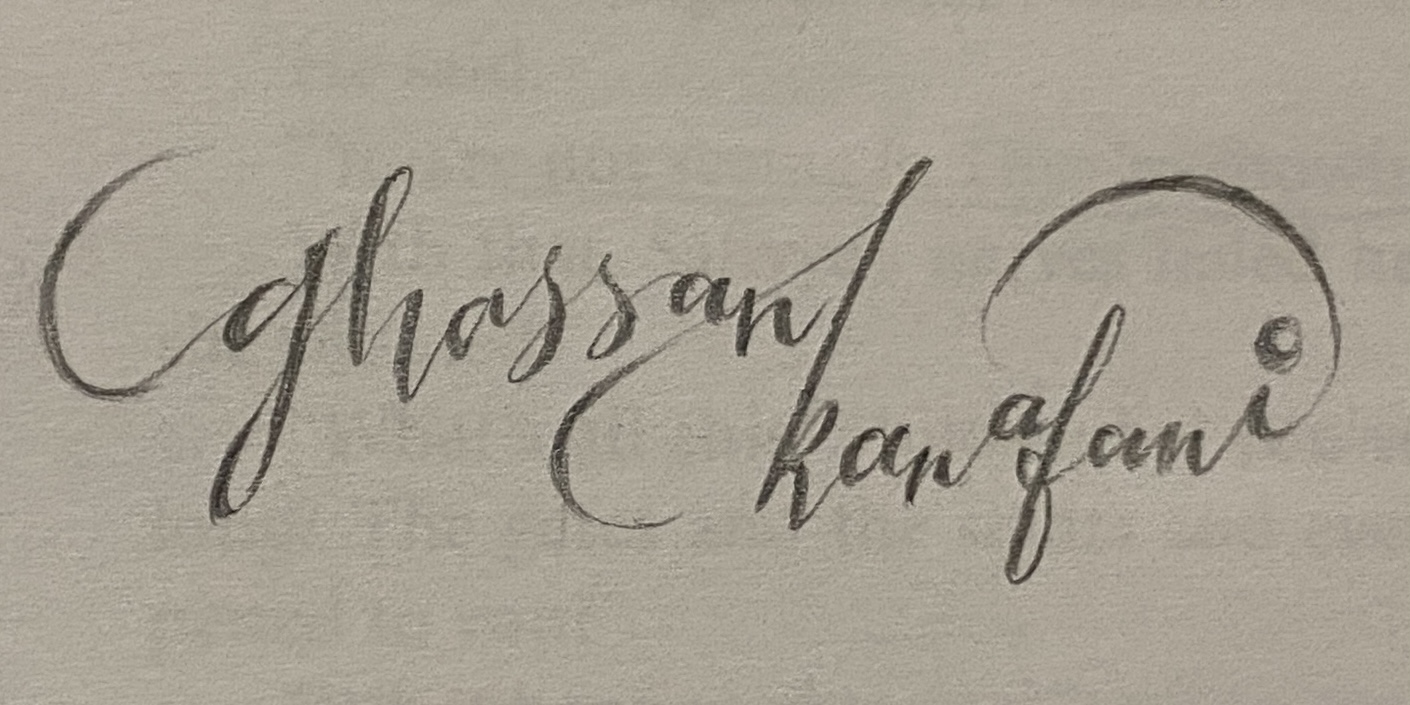 ghassan
kanafani